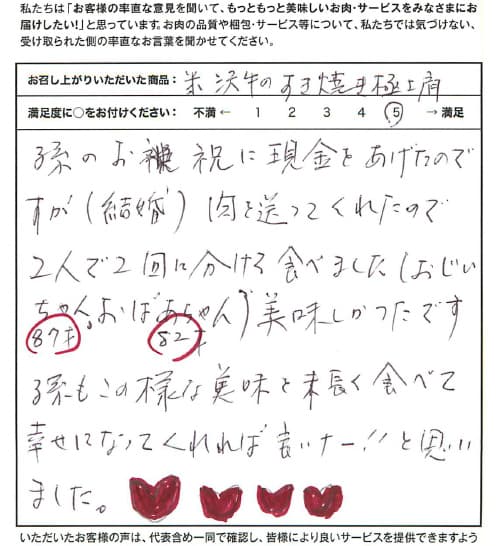 私たちは「お客様の率直な意見を聞いて、もっともっと美味しいお肉・サービスをみなさまにお
届けしたい!」と思っています。お肉の品質や梱包・サービス等について、私たちでは気づけない、
受け取られた側の率直なお言葉を聞かせてください。
お召し上がりいただいた商品： 米沢牛のすき焼き極上肩
満足度に○をお付けください： 不満 ← 1 2 3 4 5 → 満足
孫のお祝に現金をあげたので
すが(結婚)肉を送ってくれたので
2人で2回に分けて食べました(おじい
ちゃん。おばあちゃん)美味しかったです
87才 82才
孫もこの様な美味を末長く食べて
幸せになってくれれば良いナー!!と思い
ました。
いただいたお客様の声は、代表含め一同で確認し、皆様により良いサービスを提供できますよう